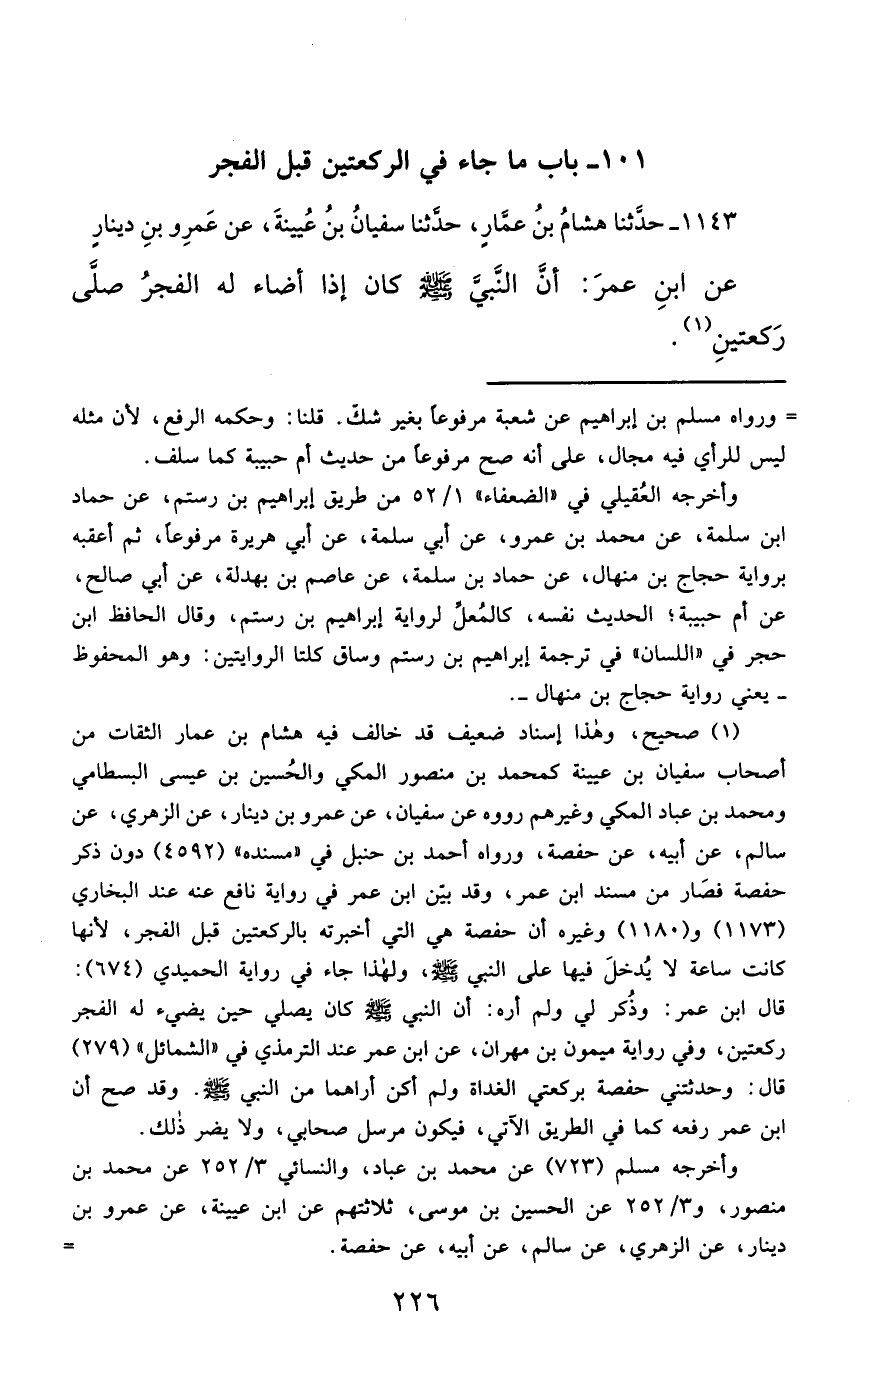 ١٠١ـ باب ما جاء في الركعتين قبل الفجر
١١٤٣ـ حدَّثنا هشامُ بنُ عمَّارٍ، حدَّثنا سفيانُ بنُ عُيينةَ، عن عَمرِو بنِ دينارٍ
عن ابنِ عمرَ: أنَّ النَّبيَّ ﷺ كان إذا أضاء له الفجرُ صلَّى
رَكعتينِ(١).
= ورواه مسلم بن إبراهيم عن شعبة مرفوعاً بغير شكّ. قلنا: وحكمه الرفع، لأن مثله
ليس للرأي فيه مجال، على أنه صح مرفوعاً من حديث أم حبيبة كما سلف.
وأخرجه العُقيلي في «الضعفاء» ١/ ٥٢ من طريق إبراهيم بن رستم، عن حماد
ابن سلمة، عن محمد بن عمرو، عن أبي سلمة، عن أبي هريرة مرفوعاً، ثم أعقبه
برواية حجاج بن منهال، عن حماد بن سلمة، عن عاصم بن بهدلة، عن أبي صالح،
عن أم حبيبة؛ الحديث نفسه، كالمُعلِّ لرواية إبراهيم بن رستم، وقال الحافظ ابن
حجر في «اللسان» في ترجمة إبراهيم بن رستم وساق كلتا الروايتين: وهو المحفوظ
ـ يعني رواية حجاج بن منهال ـ.
(١) صحيح، وهٰذا إسناد ضعيف قد خالف فيه هشام بن عمار الثقات من
أصحاب سفيان بن عيينة كمحمد بن منصور المكي والحُسين بن عيسى البسطامي
ومحمد بن عباد المكي وغيرهم رووه عن سفيان، عن عمرو بن دينار، عن الزهري، عن
سالم، عن أبيه، عن حفصة، ورواه أحمد بن حنبل في «مسنده» (٤٥٩٢) دون ذكر
حفصة فصَار من مسند ابن عمر، وقد بيّن ابن عمر في رواية نافع عنه عند البخاري
(١١٧٣) و(١١٨٠) وغيره أن حفصة هي التي أخبرته بالركعتين قبل الفجر، لأنها
كانت ساعة لا يُدخلَ فيها على النبي ﷺ، ولهٰذا جاء في رواية الحميدي (٦٧٤):
قال ابن عمر: وذُكر لي ولم أره: أن النبي ﷺ كان يصلي حين يضيء له الفجر
ركعتين، وفي رواية ميمون بن مهران، عن ابن عمر عند الترمذي في «الشمائل» (٢٧٩)
قال: وحدثتني حفصة بركعتي الغداة ولم أكن أراهما من النبي ﷺ. وقد صح أن
ابن عمر رفعه كما في الطريق الآتي، فيكون مرسل صحابي، ولا يضر ذٰلك.
وأخرجه مسلم (٧٢٣) عن محمد بن عباد، والنسائي ٣/ ٢٥٢ عن محمد بن
منصور، و٣/ ٢٥٢ عن الحسين بن موسى، ثلاثتهم عن ابن عيينة، عن عمرو بن
دينار، عن الزهري، عن سالم، عن أبيه، عن حفصة. =
٢٢٦